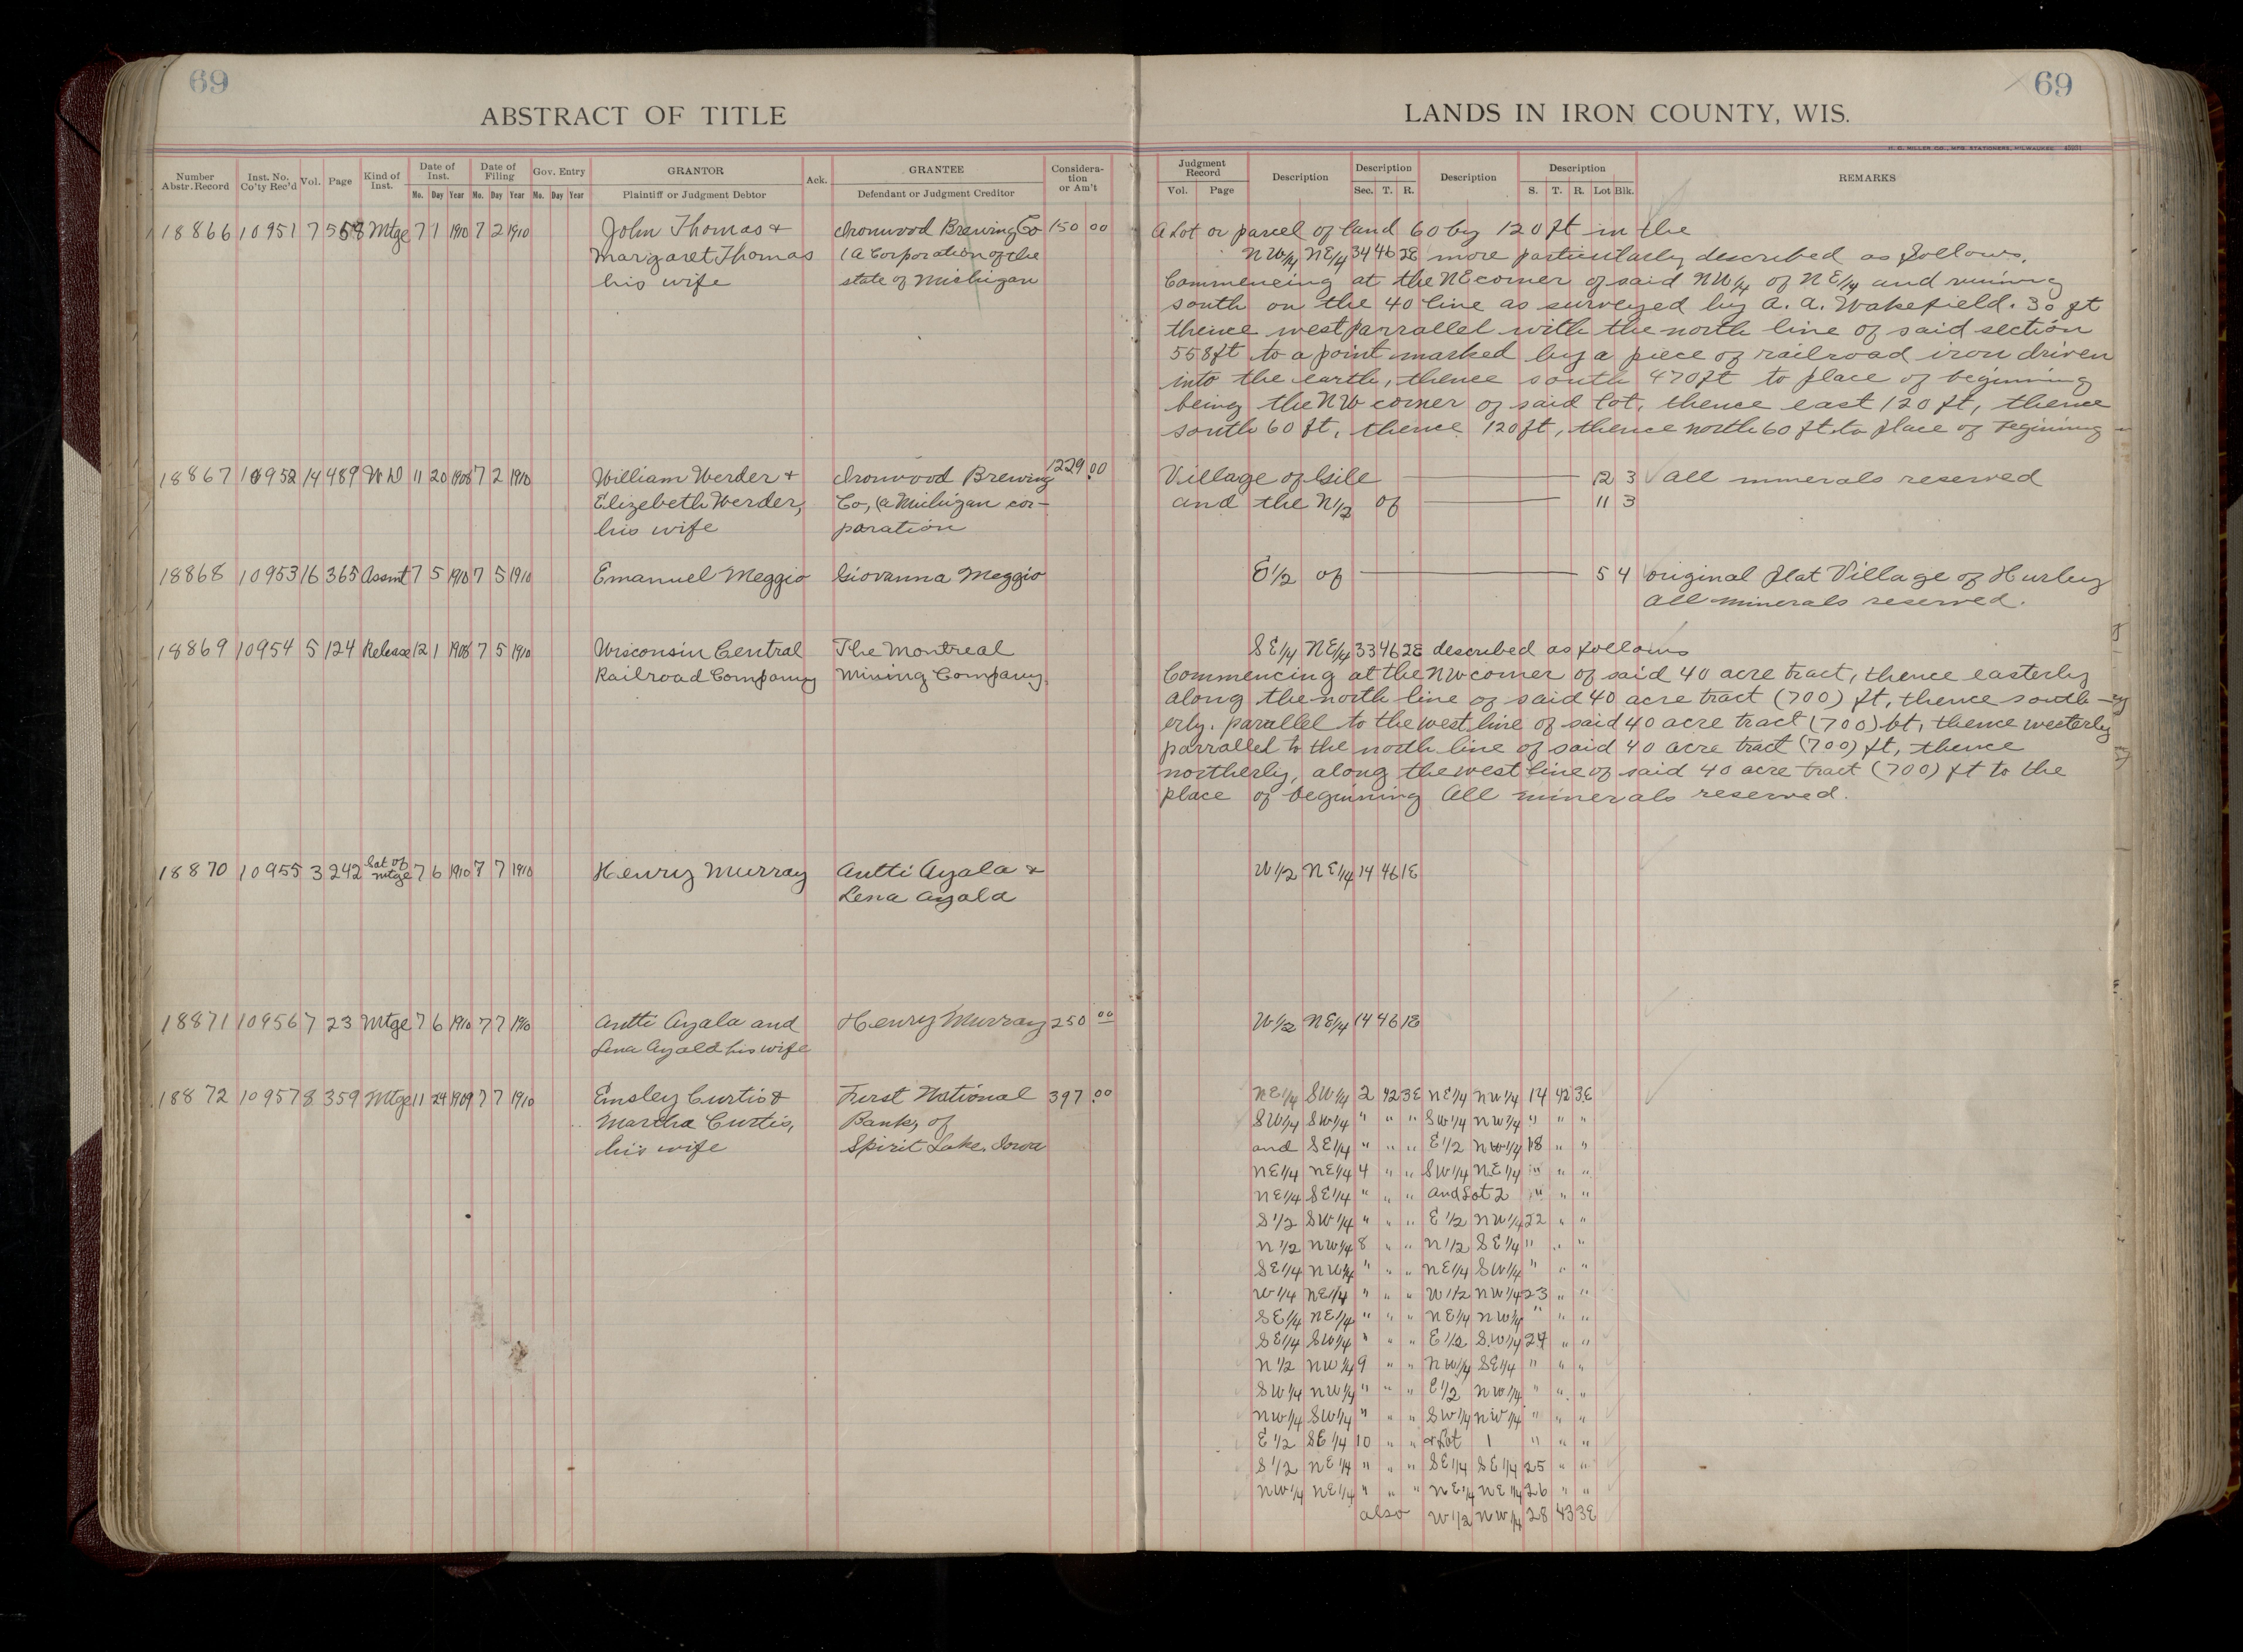 69
ABSTRACT OF TITLE
Number Abstr. Record Inst. No. Co'ty Rec'd Vol. Page Kind of Inst. Date of Inst. Mo. Day Year Date of Filing Mo. Day Year Gov. Entry Mo. Day Year GRANTOR Plaintiff or Judgment Debtor Ack. GRANTEE Defendant or Judgment Creditor Considera-tion or Am't
18866 10951 7 558 Mtge 7 1 1910 7 2 1910 John Thomas & Ironwood Brewing Co 150 00
Margaret Thomas (A Corporation of the
his wife state of Michigan
18867 10952 14 489 WD 11 20 1908 7 2 1910 William Werder & Ironwood Brewing 1229.00
Elizebeth Werder, Co, (a Michigan cor-
his wife poration
18868 10953 16 365 Assmt 7 5 1910 7 5 1910 Emanuel Meggio Giovanna Meggio
18869 10954 5 124 Release 12 1 1908 7 5 1910 Wisconsin Central The Montreal
Railroad Company Mining Company.
18870 10955 3 242 Sat of mtge 7 6 1910 7 7 1910 Henry Murray Antti Ayala &
Lena Ayala
18871 10956 7 23 Mtge 7 6 1910 7 7 1910 Antti Ayala and Henry Murray 250 00
Lena Ayala his wife
18872 10957 8 359 Mtge 11 24 1909 7 7 1910 Emsley Curtis & First National 397.00
Martha Curtis, Bank, of
his wife Spirit Lake, Iowa
69
LANDS IN IRON COUNTY, WIS.
H. C. MILLER CO., MFG. STATIONERS, MILWAUKEE
Judgment Record Vol. Page Description Description Sec. T. R. Description Description S. T. R. Lot Blk. REMARKS
A Lot or parcel of land 60 by 120 ft in the
NW1/4 NE1/4 34 46 2E more particularly described as follows.
Commencing at the NE corner of said NW1/4 of NE1/4 and runing
south on the 40 line as surveyed by A. A. Wakefield. 30 ft
thence west parrallel with the north line of said section
558 ft to a point marked by a piece of railroad iron driven
into the earth, thence south 470 ft to place of beginning
being the NW corner of said lot, thence east 120 ft, thence
south 60 ft, thence 120 ft, thence north 60 ft to place of begining
Village of Gile 12 3 All minerals reserved
and the N1/2 of 11 3
E1/2 of 5 4 original plat Village of Hurley
All minerals reserved.
SE1/4 NE1/4 33 46 2E described as follows
Commencing at the NW corner of said 40 acre tract, thence easterly
along the north line of said 40 acre tract (700) ft, thence south-
erly. parallel to the west line of said 40 acre tract (700) ft, thence westerly
parralled to the north line of said 40 acre tract (700) ft, thence
northerly, along the west line of said 40 acre tract (700) ft to the
place of beginning All minerals reserved.
W1/2 NE1/4 14 46 1E
W1/2 NE1/4 14 46 1E
NE1/4 SW1/4 2 42 3E NE1/4 NW1/4 14 42 3E
SW1/4 SW1/4 " " " SW1/4 NW1/4 " " "
and SE1/4 " " " E1/2 NW1/4 18 " "
NE1/4 NE1/4 4 " " SW1/4 NE1/4 " " "
NE1/4 SE1/4 " " " and Lot 2 " " "
S1/2 SW1/4 " " " E1/2 NW1/4 22 " "
N1/2 NW1/4 8 " " N1/2 SE1/4 " " "
SE1/4 NW1/4 " " " NE1/4 SW1/4 " " "
W1/4 NE1/4 " " " W1/2 NW1/4 23 " "
SE1/4 NE1/4 " " " NE1/4 NW1/4 " " "
SE1/4 SW1/4 " " " E1/2 SW1/4 24 " "
N1/2 NW1/4 9 " " NW1/4 SE1/4 " " "
SW1/4 NW1/4 " " " E1/2 NW1/4 " " "
NW1/4 SW1/4 " " " SW1/4 NW1/4 " " "
E1/2 SE1/4 10 " " & Lot 1 " " "
S1/2 NE1/4 " " " SE1/4 SE1/4 25 " "
NW1/4 NE1/4 " " " NE1/4 NE1/4 26 " "
also W1/2 NW1/4 28 43 3E